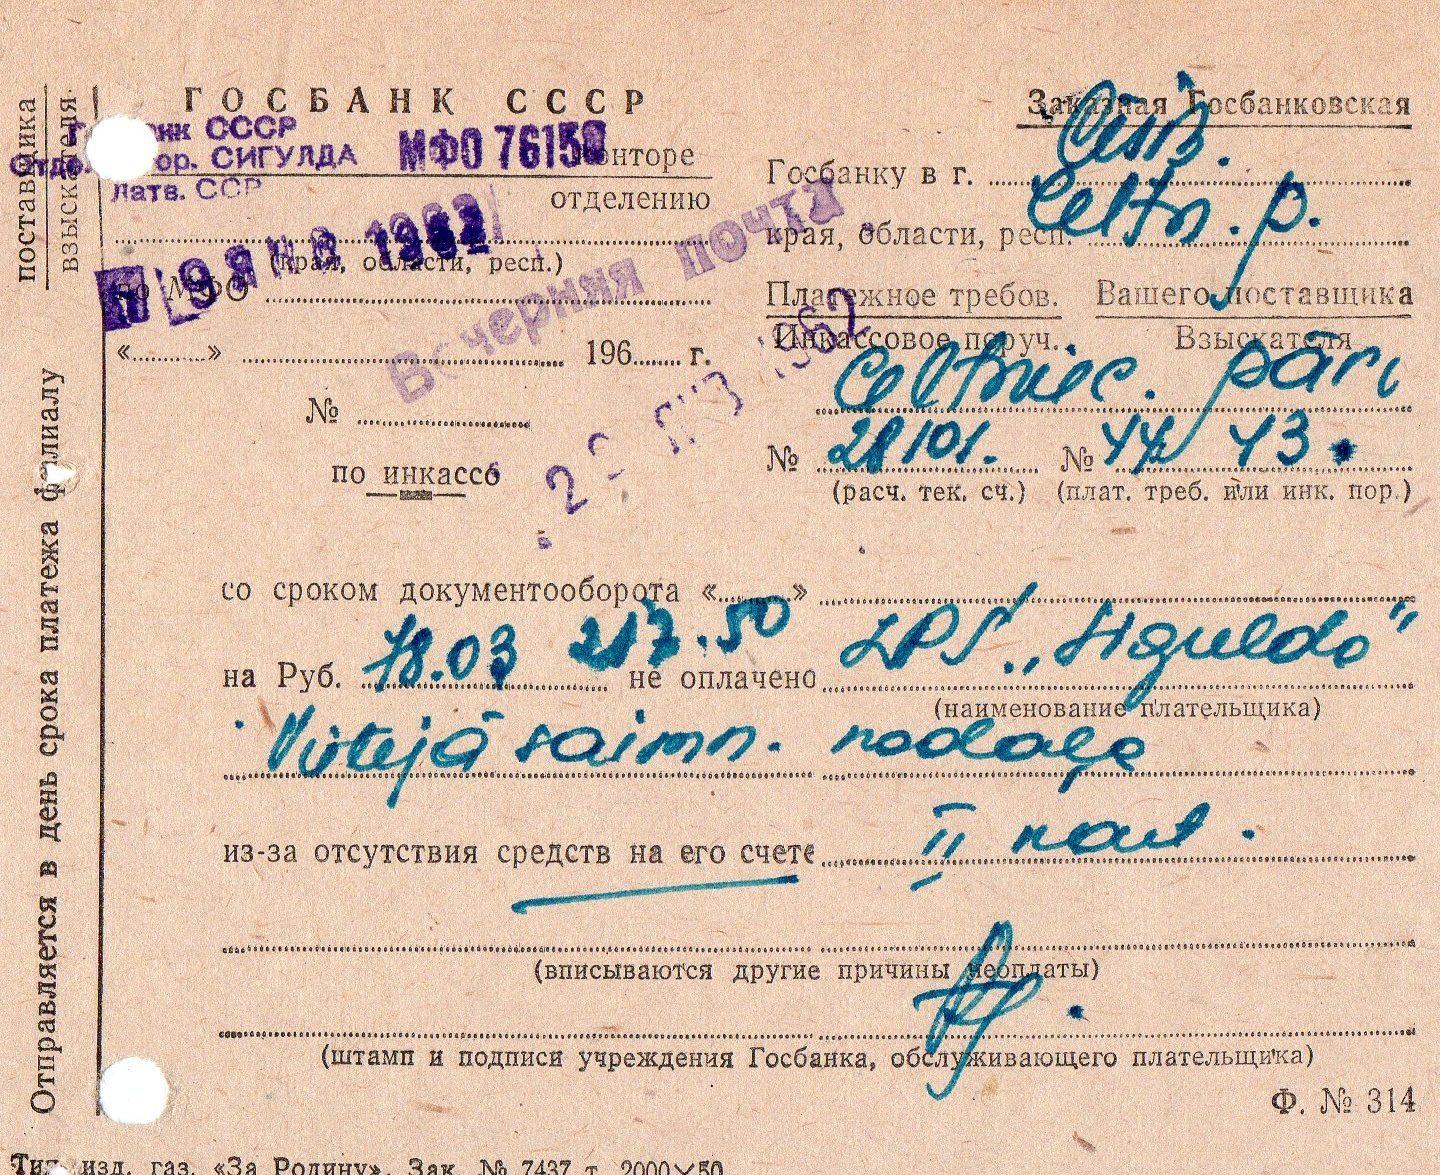 ГОСБАНК СССР
Заказная Госбанковская
Госбанк СССР
Отдел. гор. СИГУЛДА
Латв. ССР
МФО 76150
конторе
отделению
(края, области, респ.)
по МФО
9 ЯНВ 1962
Вечерняя почта
«........» ........ 196...... г.
№
по инкассо
Госбанку в г. Cēsīs.
края, области, респ. Celtn. p.
Платежное требов. Вашего поставщика
Инкассовое поруч. Взыскателя
Celtniec. pārv
№ 28101. № 44 43.
(расч. тек. сч.) (плат. треб. или инк. пор.)
1962
со сроком документооборота «........»
на Руб. 78.03 217.50 не оплачено LPS „Sigulda"
(наименование плательщика)
Vietējā saimn. nodaļa
из-за отсутствия средств на его счете II
(вписываются другие причины неоплаты)
(штамп и подписи учреждения Госбанка, обслуживающего плательщика)
Ф. № 314
Тип. изд. газ. «За Родину». Зак. № 7437 т. 2000×50
поставщика
взыскателя
Отправляется в день срока платежа филиалу